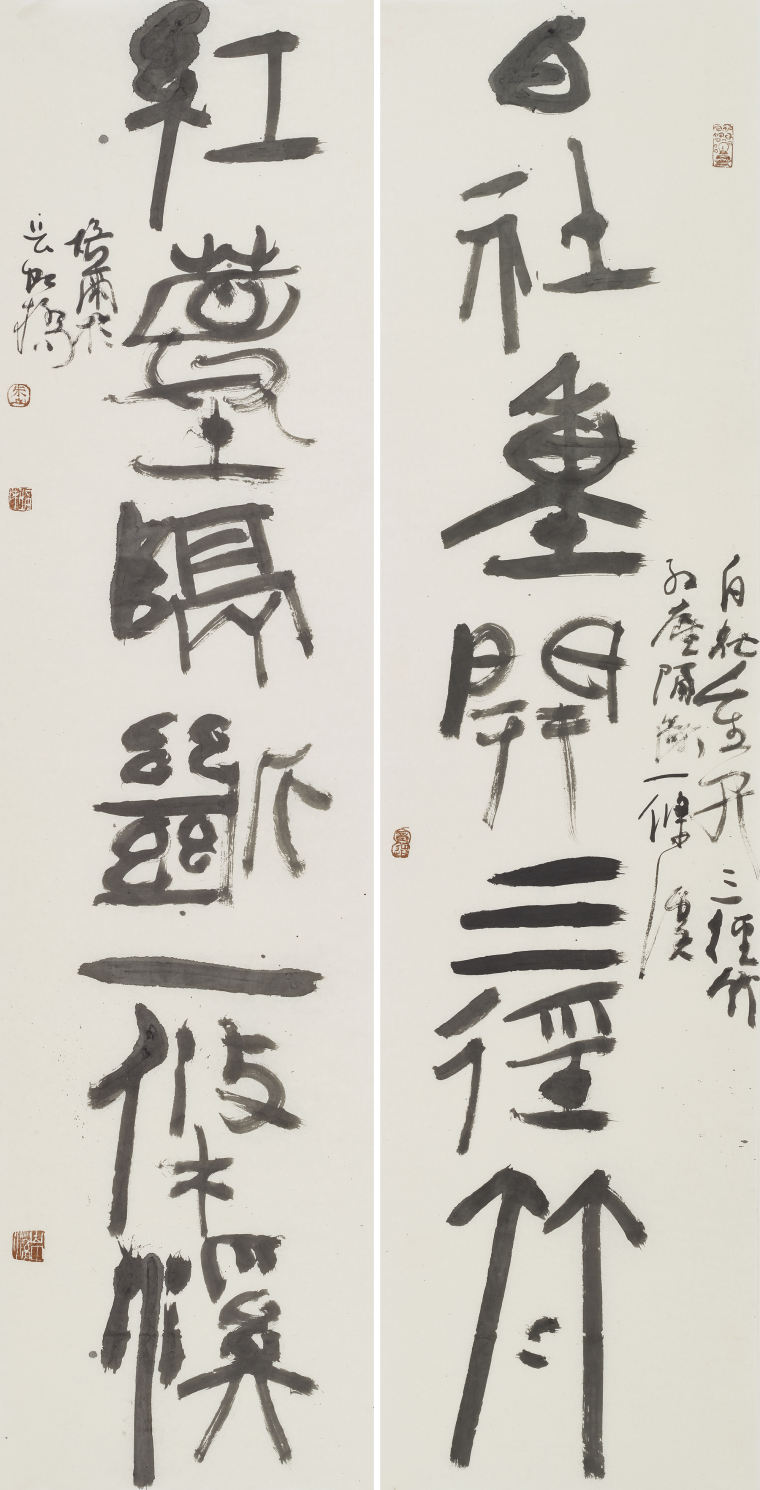 白社重開三徑竹
白社重开三徑竹
紅塵隔斷一條溪
紅塵隔斷一條溪
培爾於
虹橋